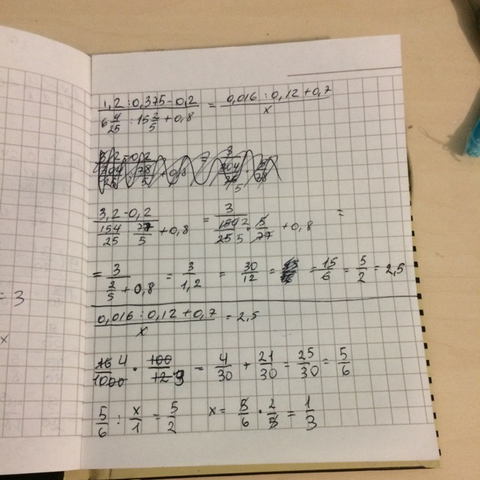 (1,2 : 0,375 - 0,2) / (6 4/25 : 15 2/5 + 0,8) = (0,016 : 0,12 + 0,7) / x
(3,2 - 0,2) / (154/25 : 77/5 + 0,8) = 3 / (154 2/25 5 · 5/77 + 0,8) =
= 3 / (2/5 + 0,8) = 3/1,2 = 30/12 = 15/6 = 5/2 = 2,5
(0,016 : 0,12 + 0,7) / x = 2,5
= 3
x
16 4/1000 · 100/12 3 = 4/30 + 21/30 = 25/30 = 5/6
5/6 : x/1 = 5/2 x = 5/6 · 2/5 = 1/3